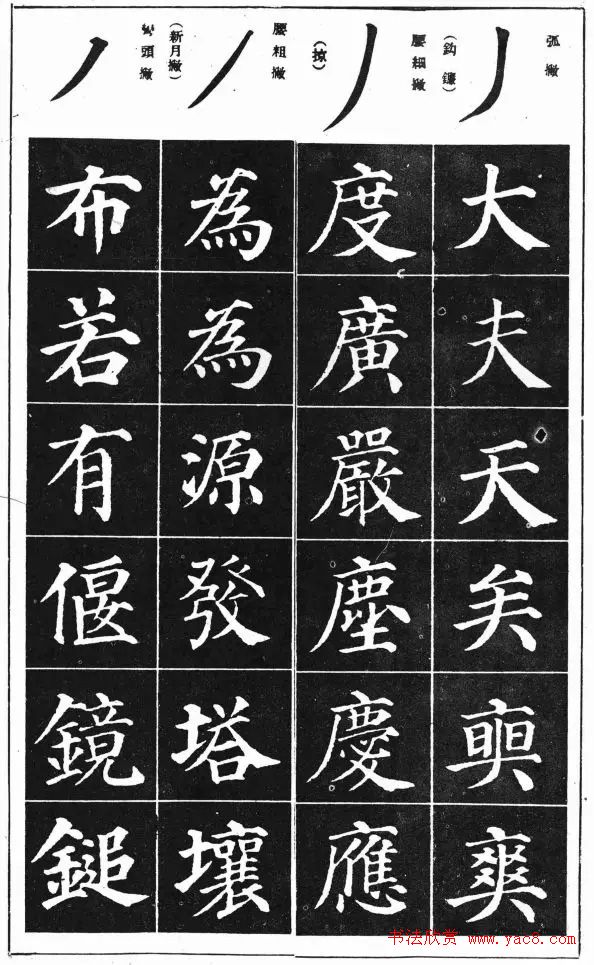 弧撇
(鈎鐮)
大夫天矣爽
腰細撇
(掠)
度廣嚴塵慶應
腰粗撇
(新月撇)
為為源發塔壤
彎頭撇
布若有偃鏡鎚
书法欣赏 www.yac8.com